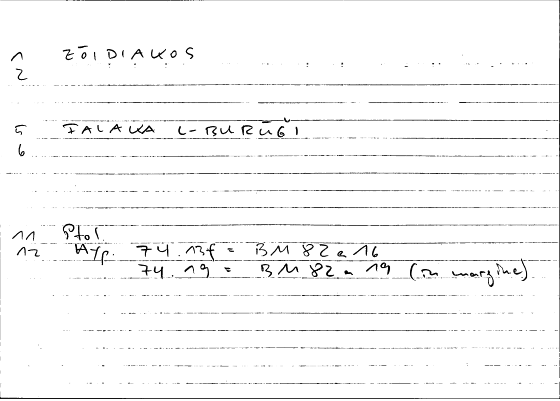 1 ZŌIDIAKOS
2
5 FALAKA L-BURŪǦI
6
11 Ptol.
12 Hyp. 74.13f = BM 82a 16
74.19 = BM 82a 19 (in margine)